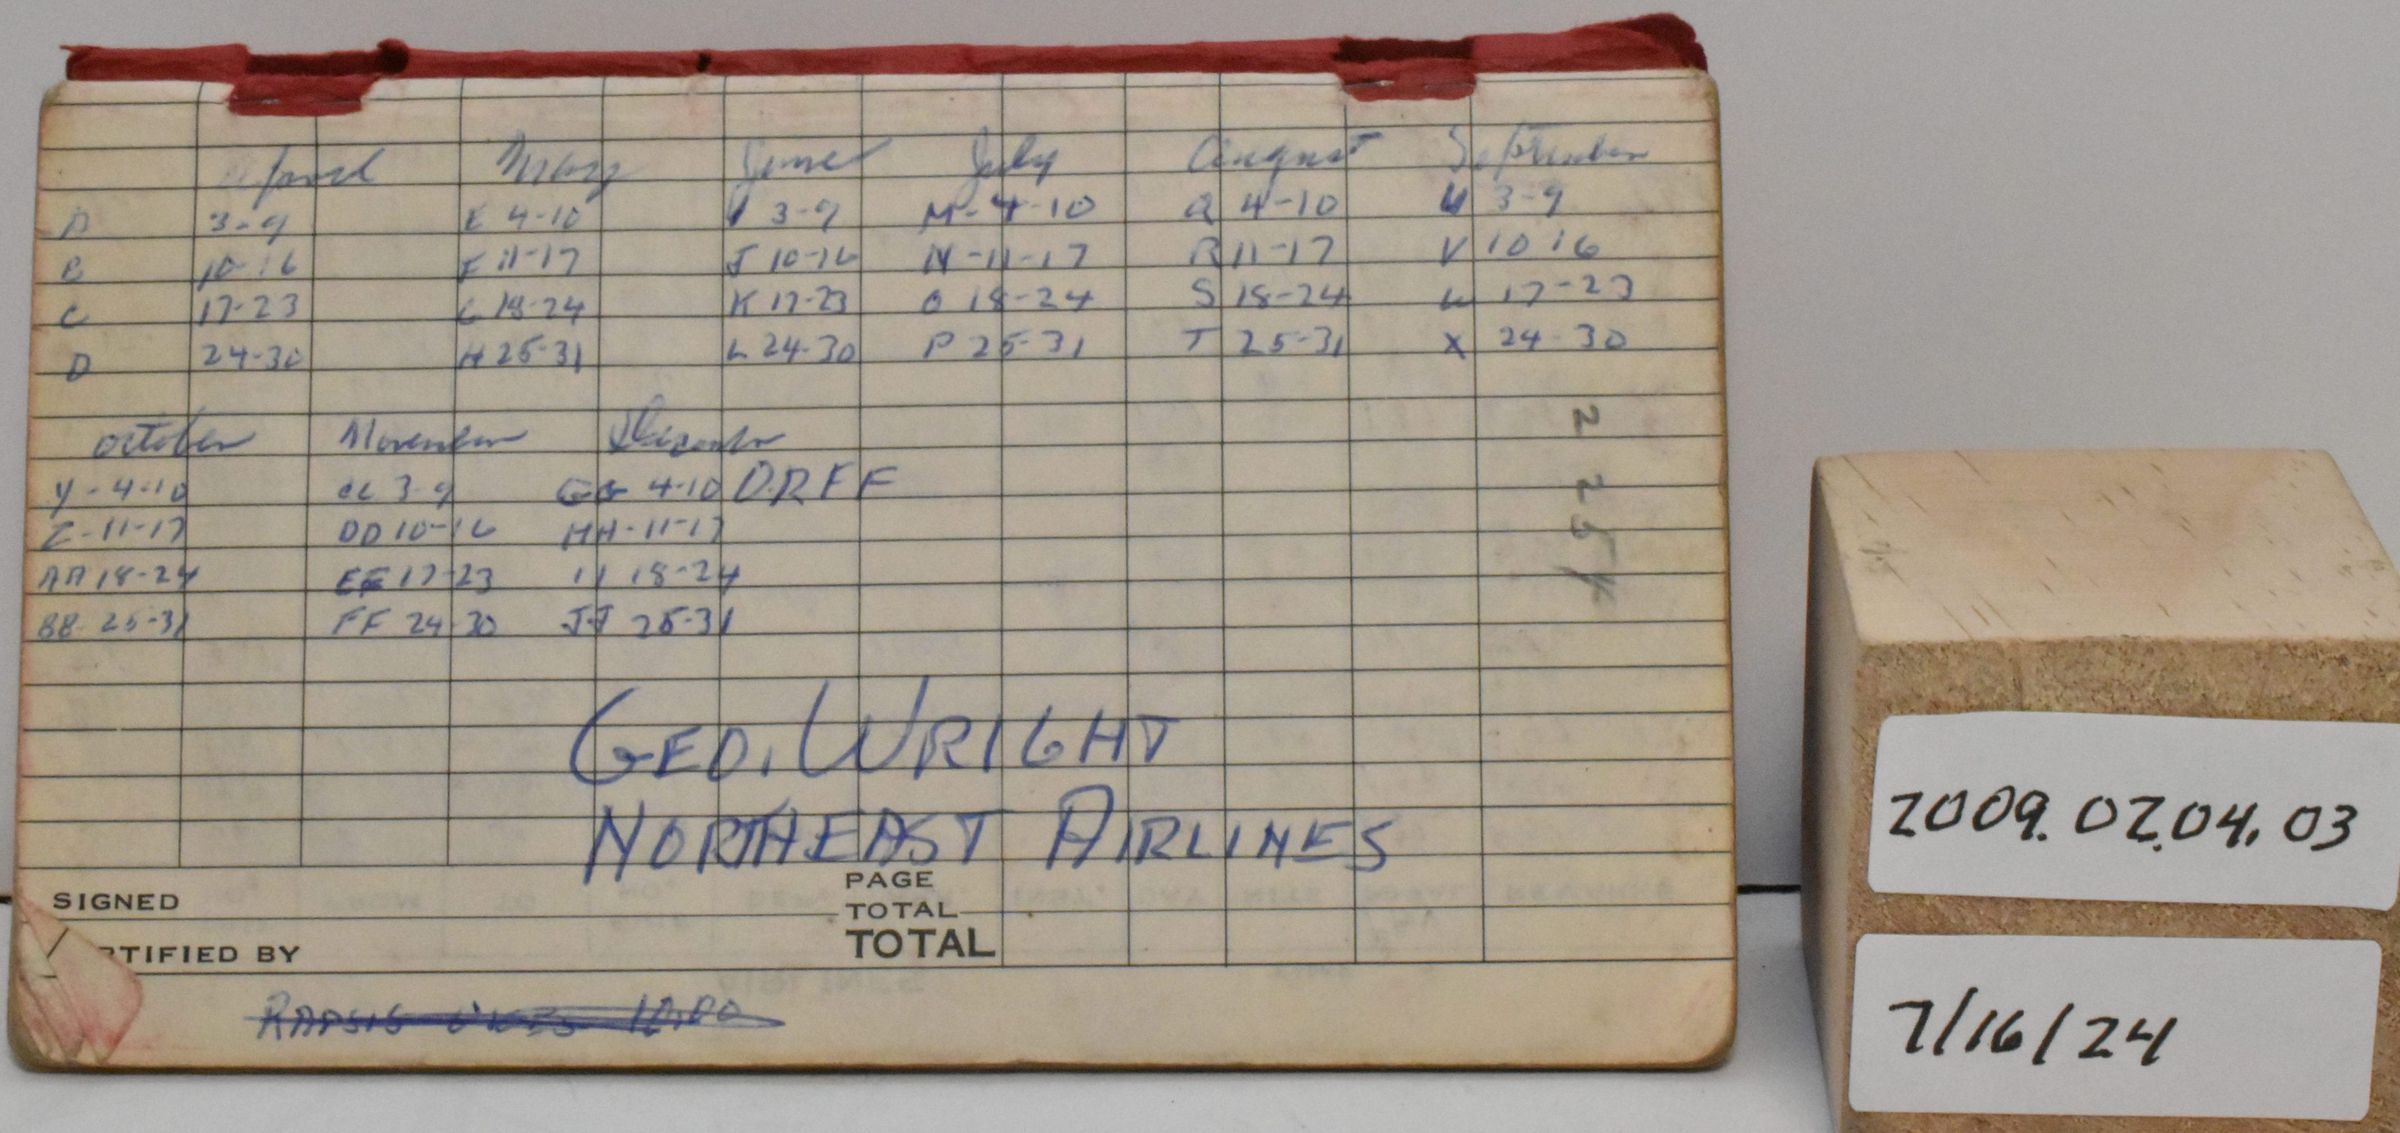 April May June July August September
A 3-9 E 4-10 I 3-9 M-4-10 Q 4-10 U 3-9
B 10-16 F 11-17 J 10-16 N-11-17 R 11-17 V 10 16
C 17-23 G 18-24 K 17-23 O 18-24 S 18-24 W 17-23
D 24-30 H 25-31 L 24-30 P 25-31 T 25-31 X 24-30
October November December
Y-4-10 CC 3-9 GG 4-10 DRFF
Z-11-17 DD 10-16 HH-11-17
AA 18-24 EE 17-23 II 18-24
BB-25-31 FF 24-30 JJ 25-31
2 25
GEO. WRIGHT
NORTHEAST AIRLINES
SIGNED
PAGE
TOTAL
RTIFIED BY TOTAL
2009.02.04.03
7/16/24